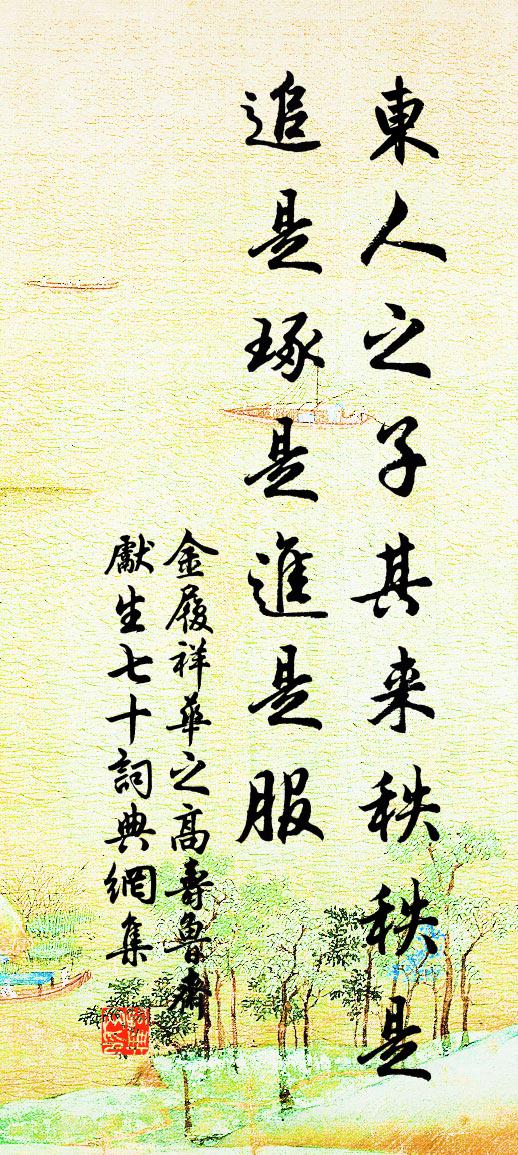 東人之子其来秩秩是
追是琢是進是服
金履祥華之高壽魯齋
獻生七十詞典網集